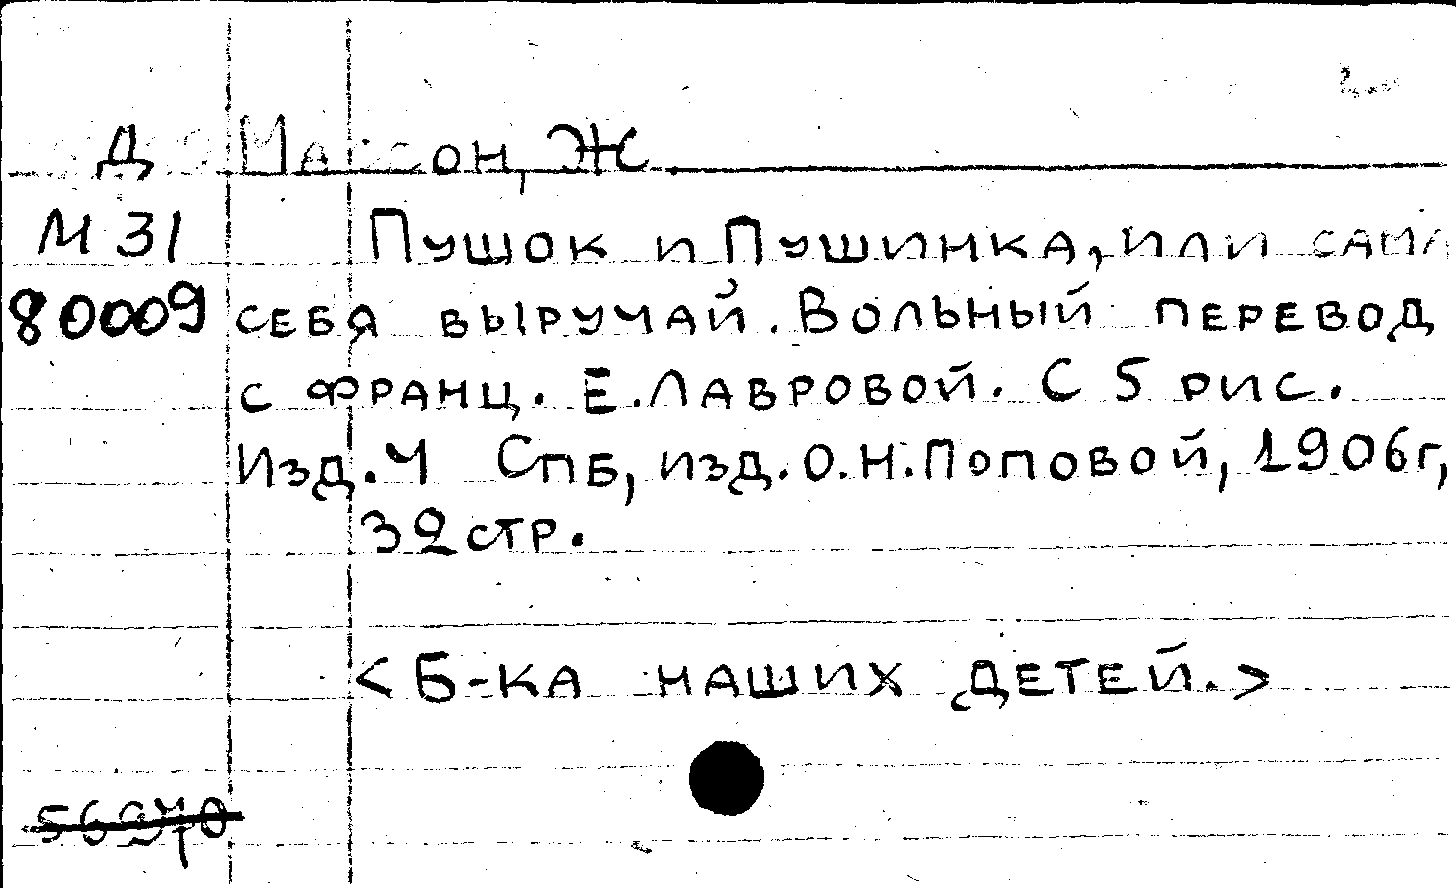 Д Массон, Ж.
М 31 Пушок и Пушинка, или сама
80009 себя выручай. Вольный перевод
с франц. Е. Лавровой. С 5 рис.
Изд. 4 Спб, изд. О.Н. Поповой, 1906г,
32 стр.
<Б-ка наших детей.>